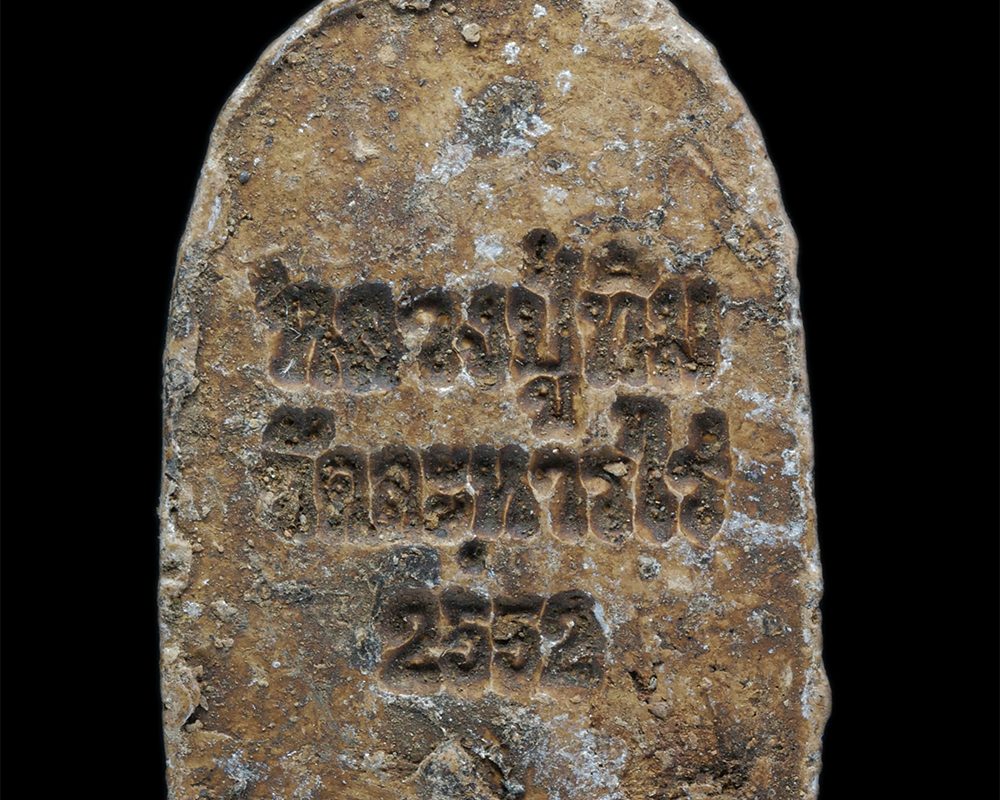 หลวงปู่ทิม
วัดละหารไร่
2552